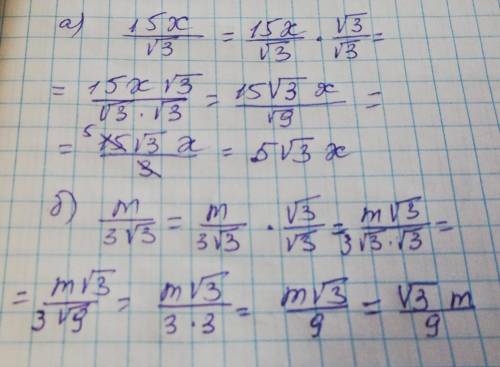 а) 15x/√3 = 15x/√3 · √3/√3 =
= 15x√3/√3 · √3 = 15√3 x/√9 =
= 5 15√3 x/3 = 5√3 x
б) m/3√3 = m/3√3 · √3/√3 = m√3/3√3·√3 =
= m√3/3√9 = m√3/3·3 = m√3/9 = √3/9 m